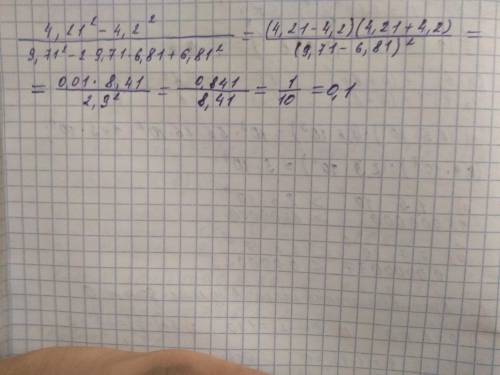 4,21² - 4,2² / 9,71² - 2 9,71 · 6,81 + 6,81² = (4,21 - 4,2)(4,21 + 4,2) / (9,71 - 6,81)² =
= 0,01 · 8,41 / 2,9² = 0,841 / 8,41 = 1 / 10 = 0,1